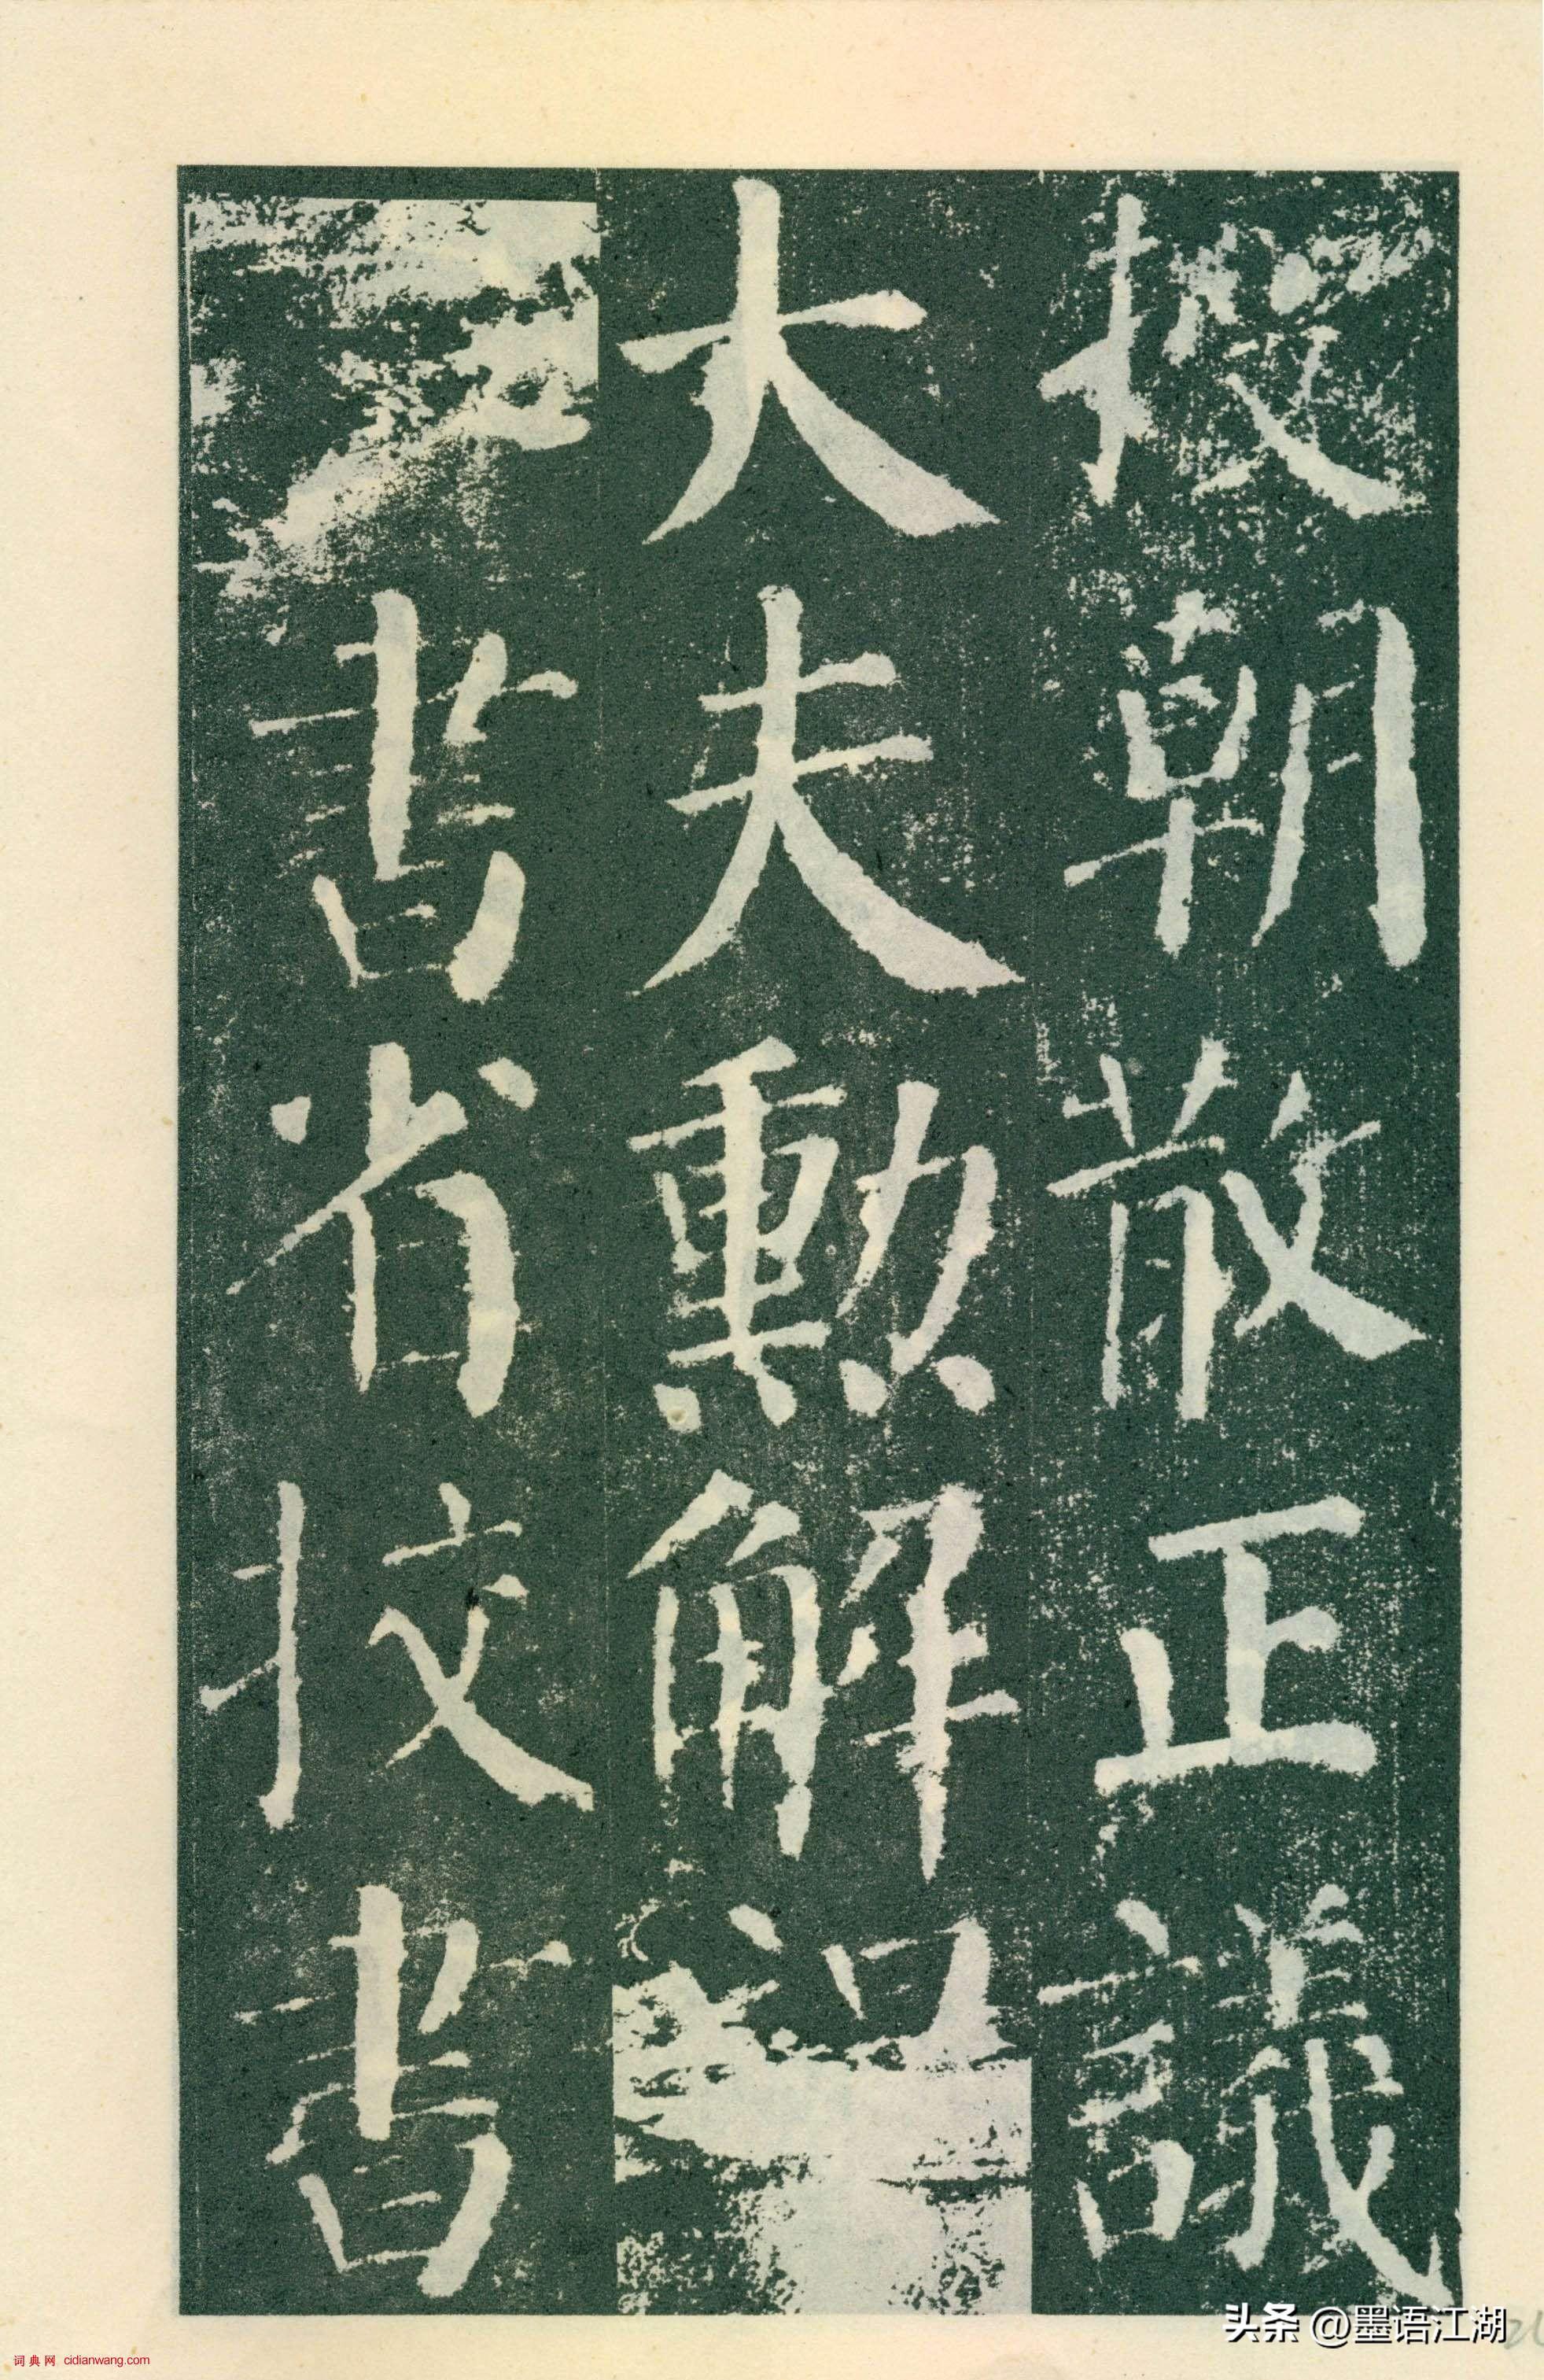 授朝散正議
大夫勳解
書省校書
头条 @墨语江湖
词典网 cidianwang.com